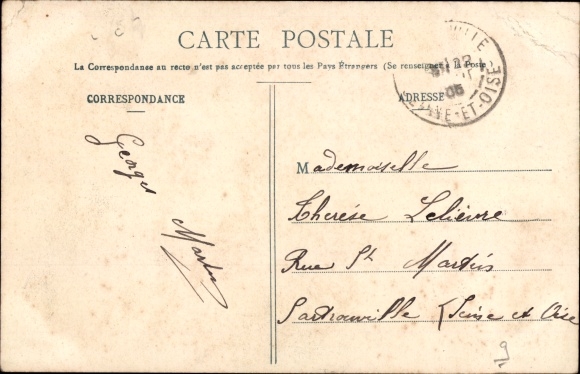 CARTE POSTALE
La Correspondance au recto n'est pas acceptée par tous les Pays Étrangers (Se renseigner à la Poste
CORRESPONDANCE
ADRESSE
SEINE-ET-OISE
05
Georges
Martin
Mademoiselle
Thérèse Lelièvre
Rue St Martin
Sartrouville (Seine et Oise